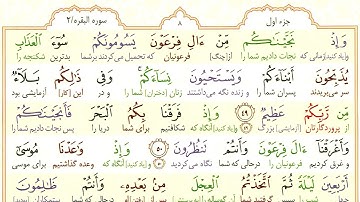 جزء اول ۸ سوره البقره/۲
وَإِذْ نَجَّيْنَٰكُم مِّنْ ءَالِ فِرْعَوْنَ يَسُومُونَكُمْ سُوٓءَ ٱلْعَذَابِ
نجات دادیم شما را از [چنگ] فرعونیان که تحمیل می کردند برشما بدترین شکنجه را
يُذَبِّحُونَ أَبْنَآءَكُمْ وَيَسْتَحْيُونَ نِسَآءَكُمْ وَفِى ذَٰلِكُم بَلَآءٌ
سر می بریدند پسران شما را و زنده نگه می داشتند زنان (دختران) شما را و در این [کار] آزمایشی بود
مِّن رَّبِّكُمْ عَظِيمٌ ۴۹ وَإِذْ فَرَقْنَا بِكُمُ ٱلْبَحْرَ فَأَنجَيْنَٰكُمْ
از پروردگارتان [آزمایشی] بزرگ آنگاه که شکافتیم برای شما دریا را پس نجات دادیم شما را
وَأَغْرَقْنَآ ءَالَ فِرْعَوْنَ وَأَنتُمْ تَنظُرُونَ ۵۰ وَإِذْ وَٰعَدْنَا مُوسَىٰٓ
و غرق کردیم فرعونیان را درحالی که شما نگاه می کردید آنگاه که وعده گذاشتیم برای موسی
أَرْبَعِينَ لَيْلَةً ثُمَّ ٱتَّخَذْتُمُ ٱلْعِجْلَ مِنۢ بَعْدِهِۦ وَأَنتُمْ ظَٰلِمُونَ